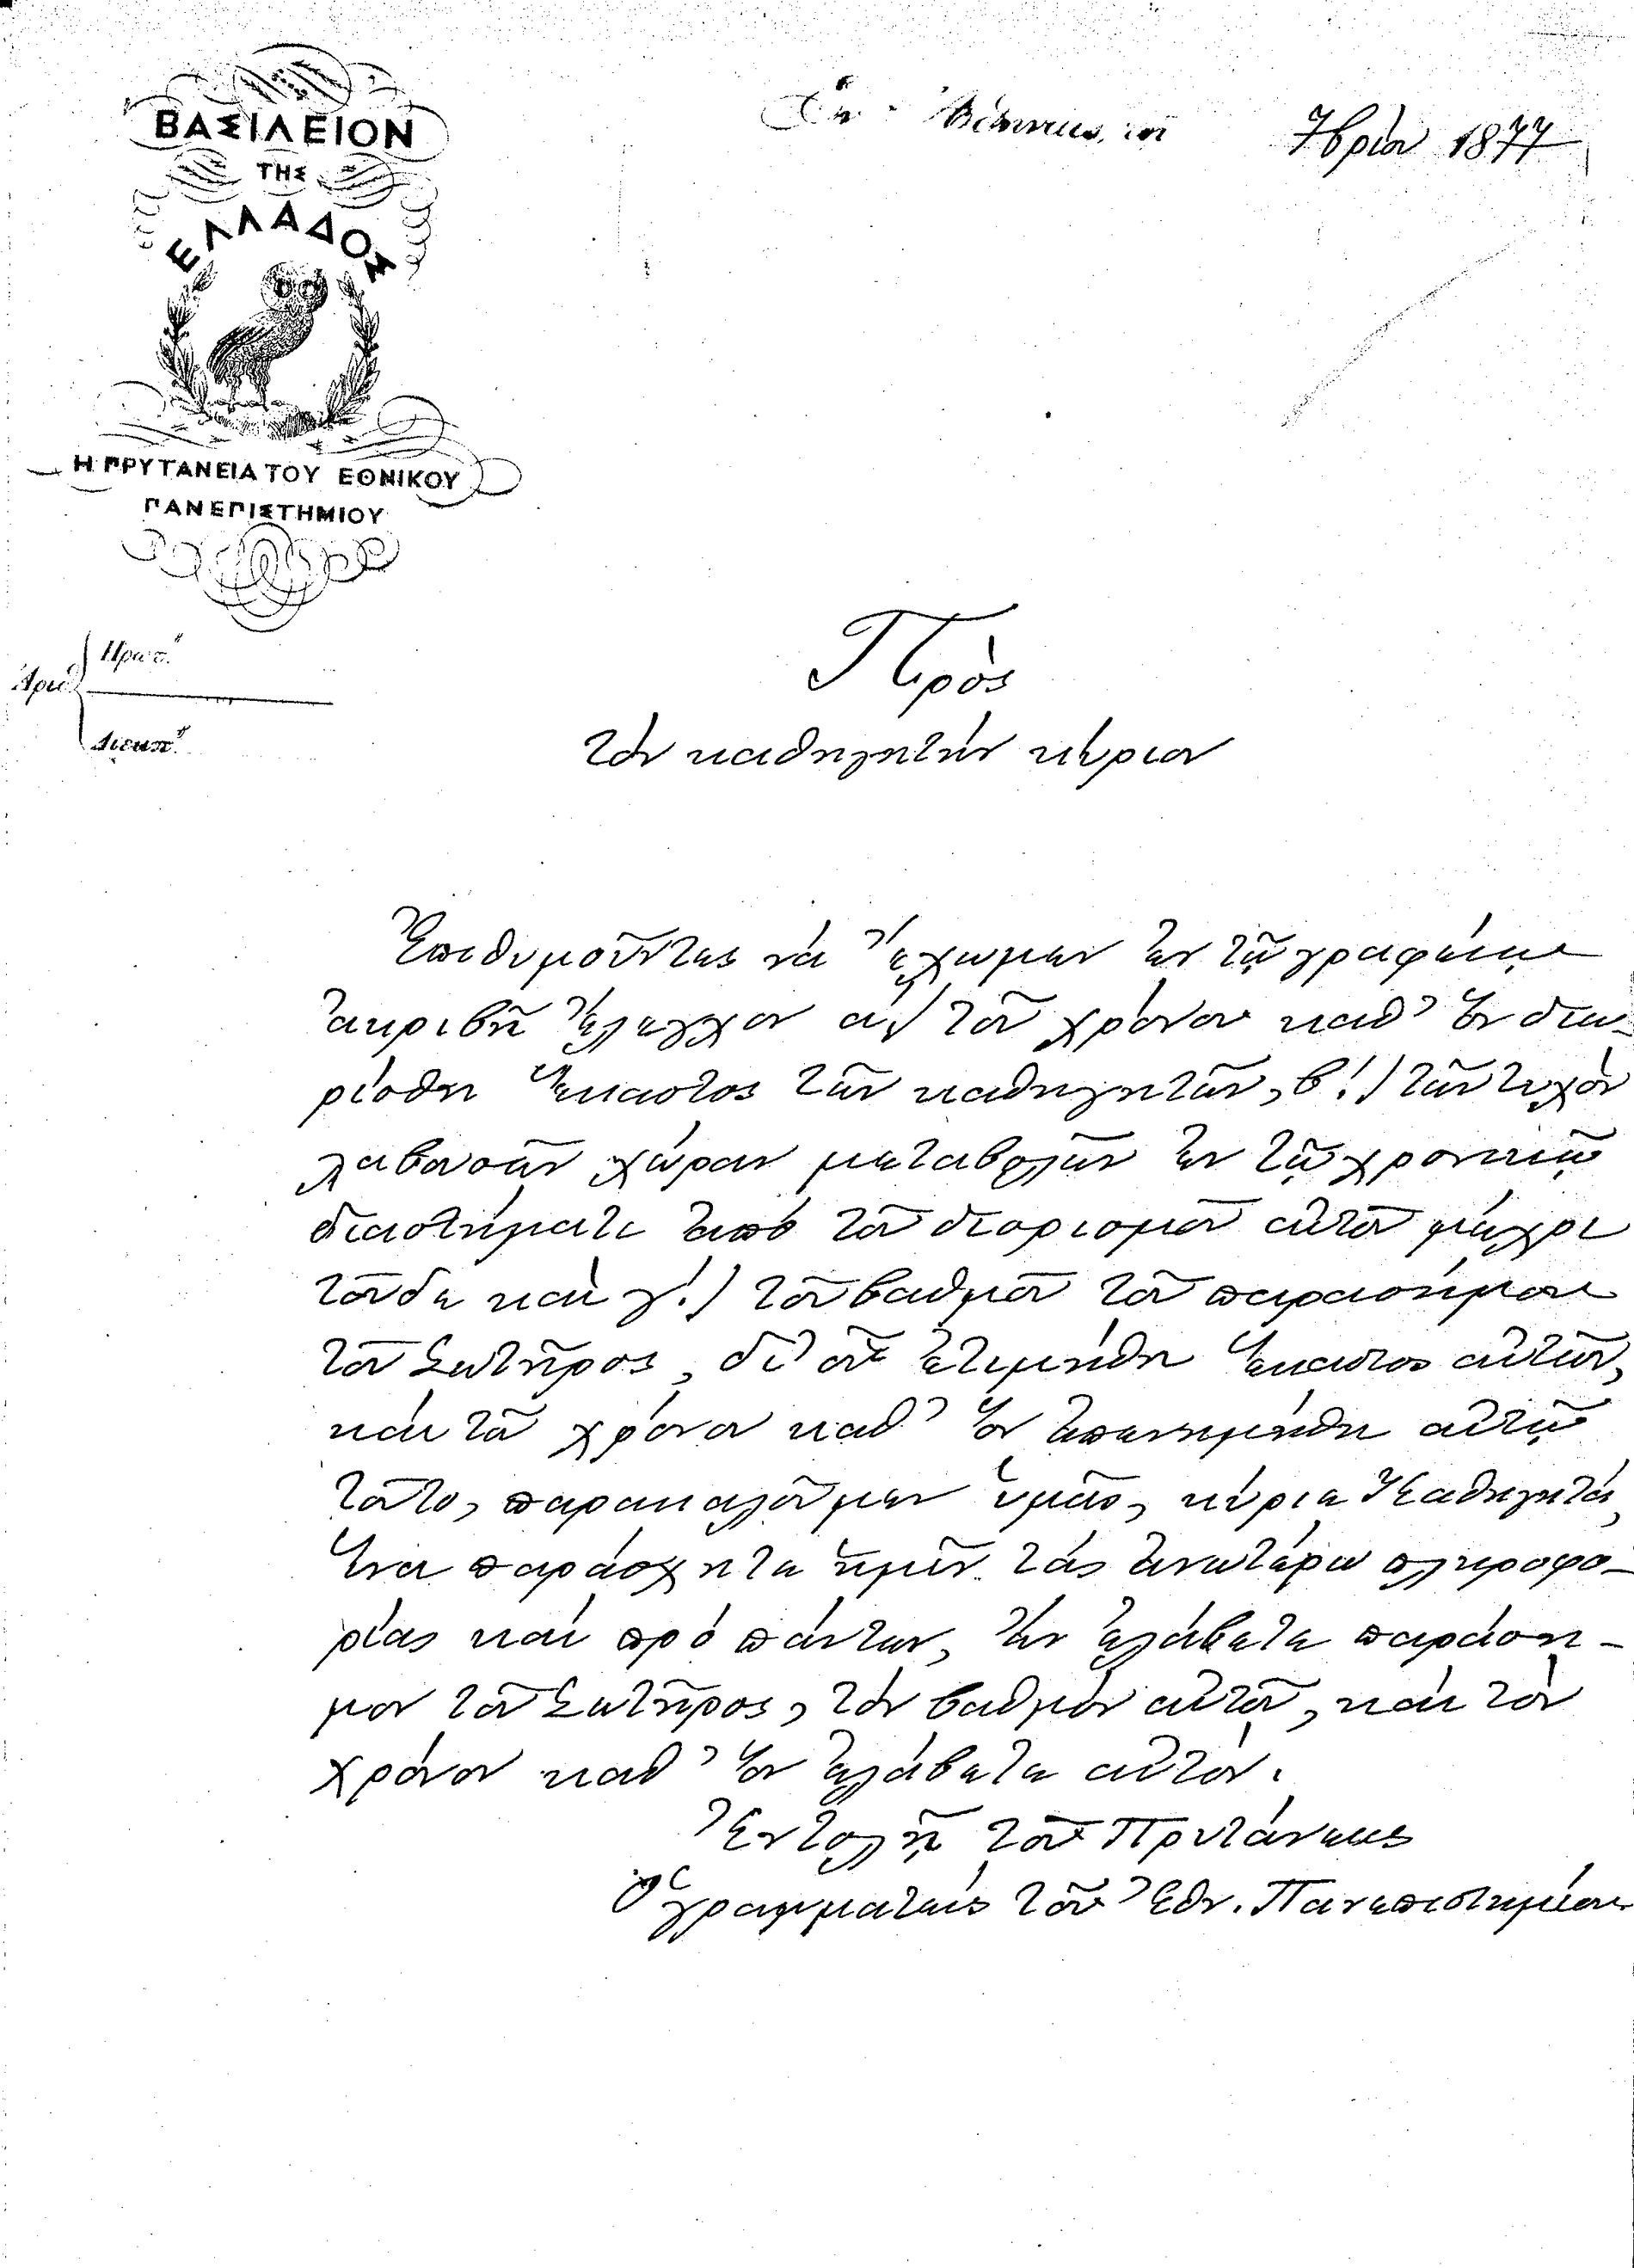 ΒΑΣΙΛΕΙΟΝ
ΤΗΣ
ΕΛΛΑΔΟΣ
Η ΠΡΥΤΑΝΕΙΑ ΤΟΥ ΕΘΝΙΚΟΥ
ΠΑΝΕΠΙΣΤΗΜΙΟΥ
Ἀριθ.
Πρωτ.
Διεκπ.
Ἐν Ἀθήναις, τῇ 7βρίου 1877
Πρὸς
τὸν καθηγητὴν κύριον
Ἐπιθυμοῦντες νὰ ἔχωμεν ἐν τῷ γραφείῳ
ἀκριβῆ ἔλεγχον α) τοῦ χρόνου καθ' ὃν διω-
ρίσθη ἕκαστος τῶν καθηγητῶν, β'.) τῶν τυχὸν
λαβουσῶν χώραν μεταβολῶν ἐν τῷ χρονικῷ
διαστήματι ἀπὸ τοῦ διορισμοῦ αὐτοῦ μέχρι
τοῦδε καὶ γ'.) τοῦ βαθμοῦ τοῦ παρασήμου
τοῦ Σωτῆρος, δι' οὗ ἐτιμήθη ἕκαστος αὐτῶν,
καὶ τοῦ χρόνου καθ' ὃν ἀπενεμήθη αὐτῷ
τοῦτο, παρακαλοῦμεν ὑμᾶς, κύριε Καθηγητά,
ἵνα παράσχητε ἡμῖν τὰς ἀνωτέρω πληροφο-
ρίας καὶ πρὸ πάντων, ἂν ἐλάβετε παράση-
μον τοῦ Σωτῆρος, τὸν βαθμὸν αὐτοῦ, καὶ τὸν
χρόνον καθ' ὃν ἐλάβετε αὐτόν.
Ἐντολῇ τοῦ Πρυτάνεως
Ὁ γραμματεὺς τοῦ Ἐθν. Πανεπιστημίου